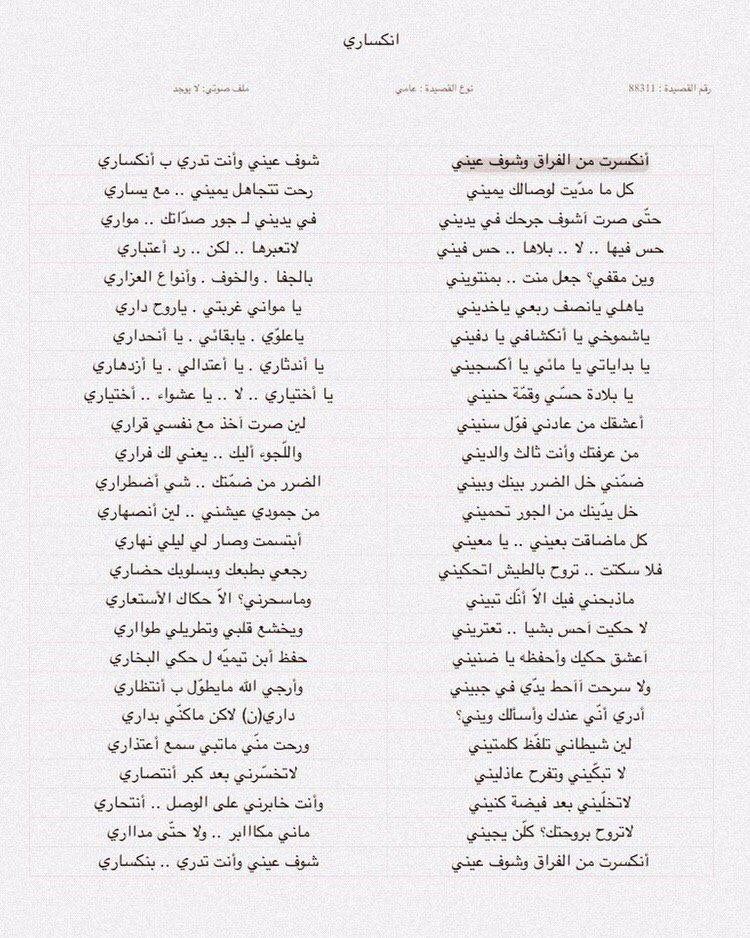 انكساري
رقم القصيدة : 88311 نوع القصيدة : عامي ملف صوتي: لا يوجد
أنكسرت من الفراق وشوف عيني شوف عيني وأنت تدري ب أنكساري
كل ما مدّيت لوصالك يميني رحت تتجاهل يميني .. مع يساري
حتّى صرت آشوف جرحك في يديني في يديني لـ جور صدّاتك .. مواري
حس فيها .. لا .. بلاها .. حس فيني لاتعبرها .. لكن .. رد أعتباري
وين مقفي؟ جعل منت .. بمنتويني بالجفا . والخوف . وأنواع العزاري
ياهلي يانصف ربعي ياخديني يا مواني غربتي . ياروح داري
ياشموخي يا أنكشافي يا دفيني ياعلوّي . يابقائي . يا أنحداري
يا بداياتي يا مائي يا أكسجيني يا أندثاري . يا أعتدالي . يا أزدهاري
يا بلادة حسّي وقمّة حنيني يا أختياري .. لا .. يا عشواء .. أختياري
أعشقك من عادني فوّل سنيني لين صرت آخذ مع نفسي قراري
من عرفتك وأنت ثالث والديني واللّجوء أليك .. يعني لك فراري
ضمّني خل الضرر بينك وبيني الضرر من ضمّتك .. شي أضطراري
خل يدّينك من الجور تحميني من جمودي عيشني .. لين أنصهاري
كل ماضاقت بعيني .. يا معيني أبتسمت وصار لي ليلي نهاري
فلا سكتت .. تروح بالطيش اتحكيني رجعي بطبعك وبسلوبك حضاري
ماذبحني فيك الآ أنّك تبيني وماسحرني؟ الآ حكاك الأستعاري
لا حكيت آحس بشيا .. تعتريني ويخشع قلبي وتطريلي طوااري
آعشق حكيك وأحفظه يا ضنيني حفظ أبن تيميّه ل حكي البخاري
ولا سرحت آآحط يدّي في جبيني وأرجي الله مايطوّل ب أنتظاري
أدري أنّي عندك وأسألك ويني؟ داري(ن) لاكن ماكنّي بداري
لين شيطاني تلفّظ كلمتيني ورحت منّي ماتبي سمع أعتذاري
لا تبكّيني وتفرح عاذليني لاتخسّرني بعد كبر أنتصاري
لاتخلّيني بعد فيضة كنيني وأنت خابرني على الوصل .. أنتحاري
لاتروح بروحتك؟ كلّن يجيني ماني مكااابر .. ولا حتّى مدااري
أنكسرت من الفراق وشوف عيني شوف عيني وأنت تدري .. بنكساري